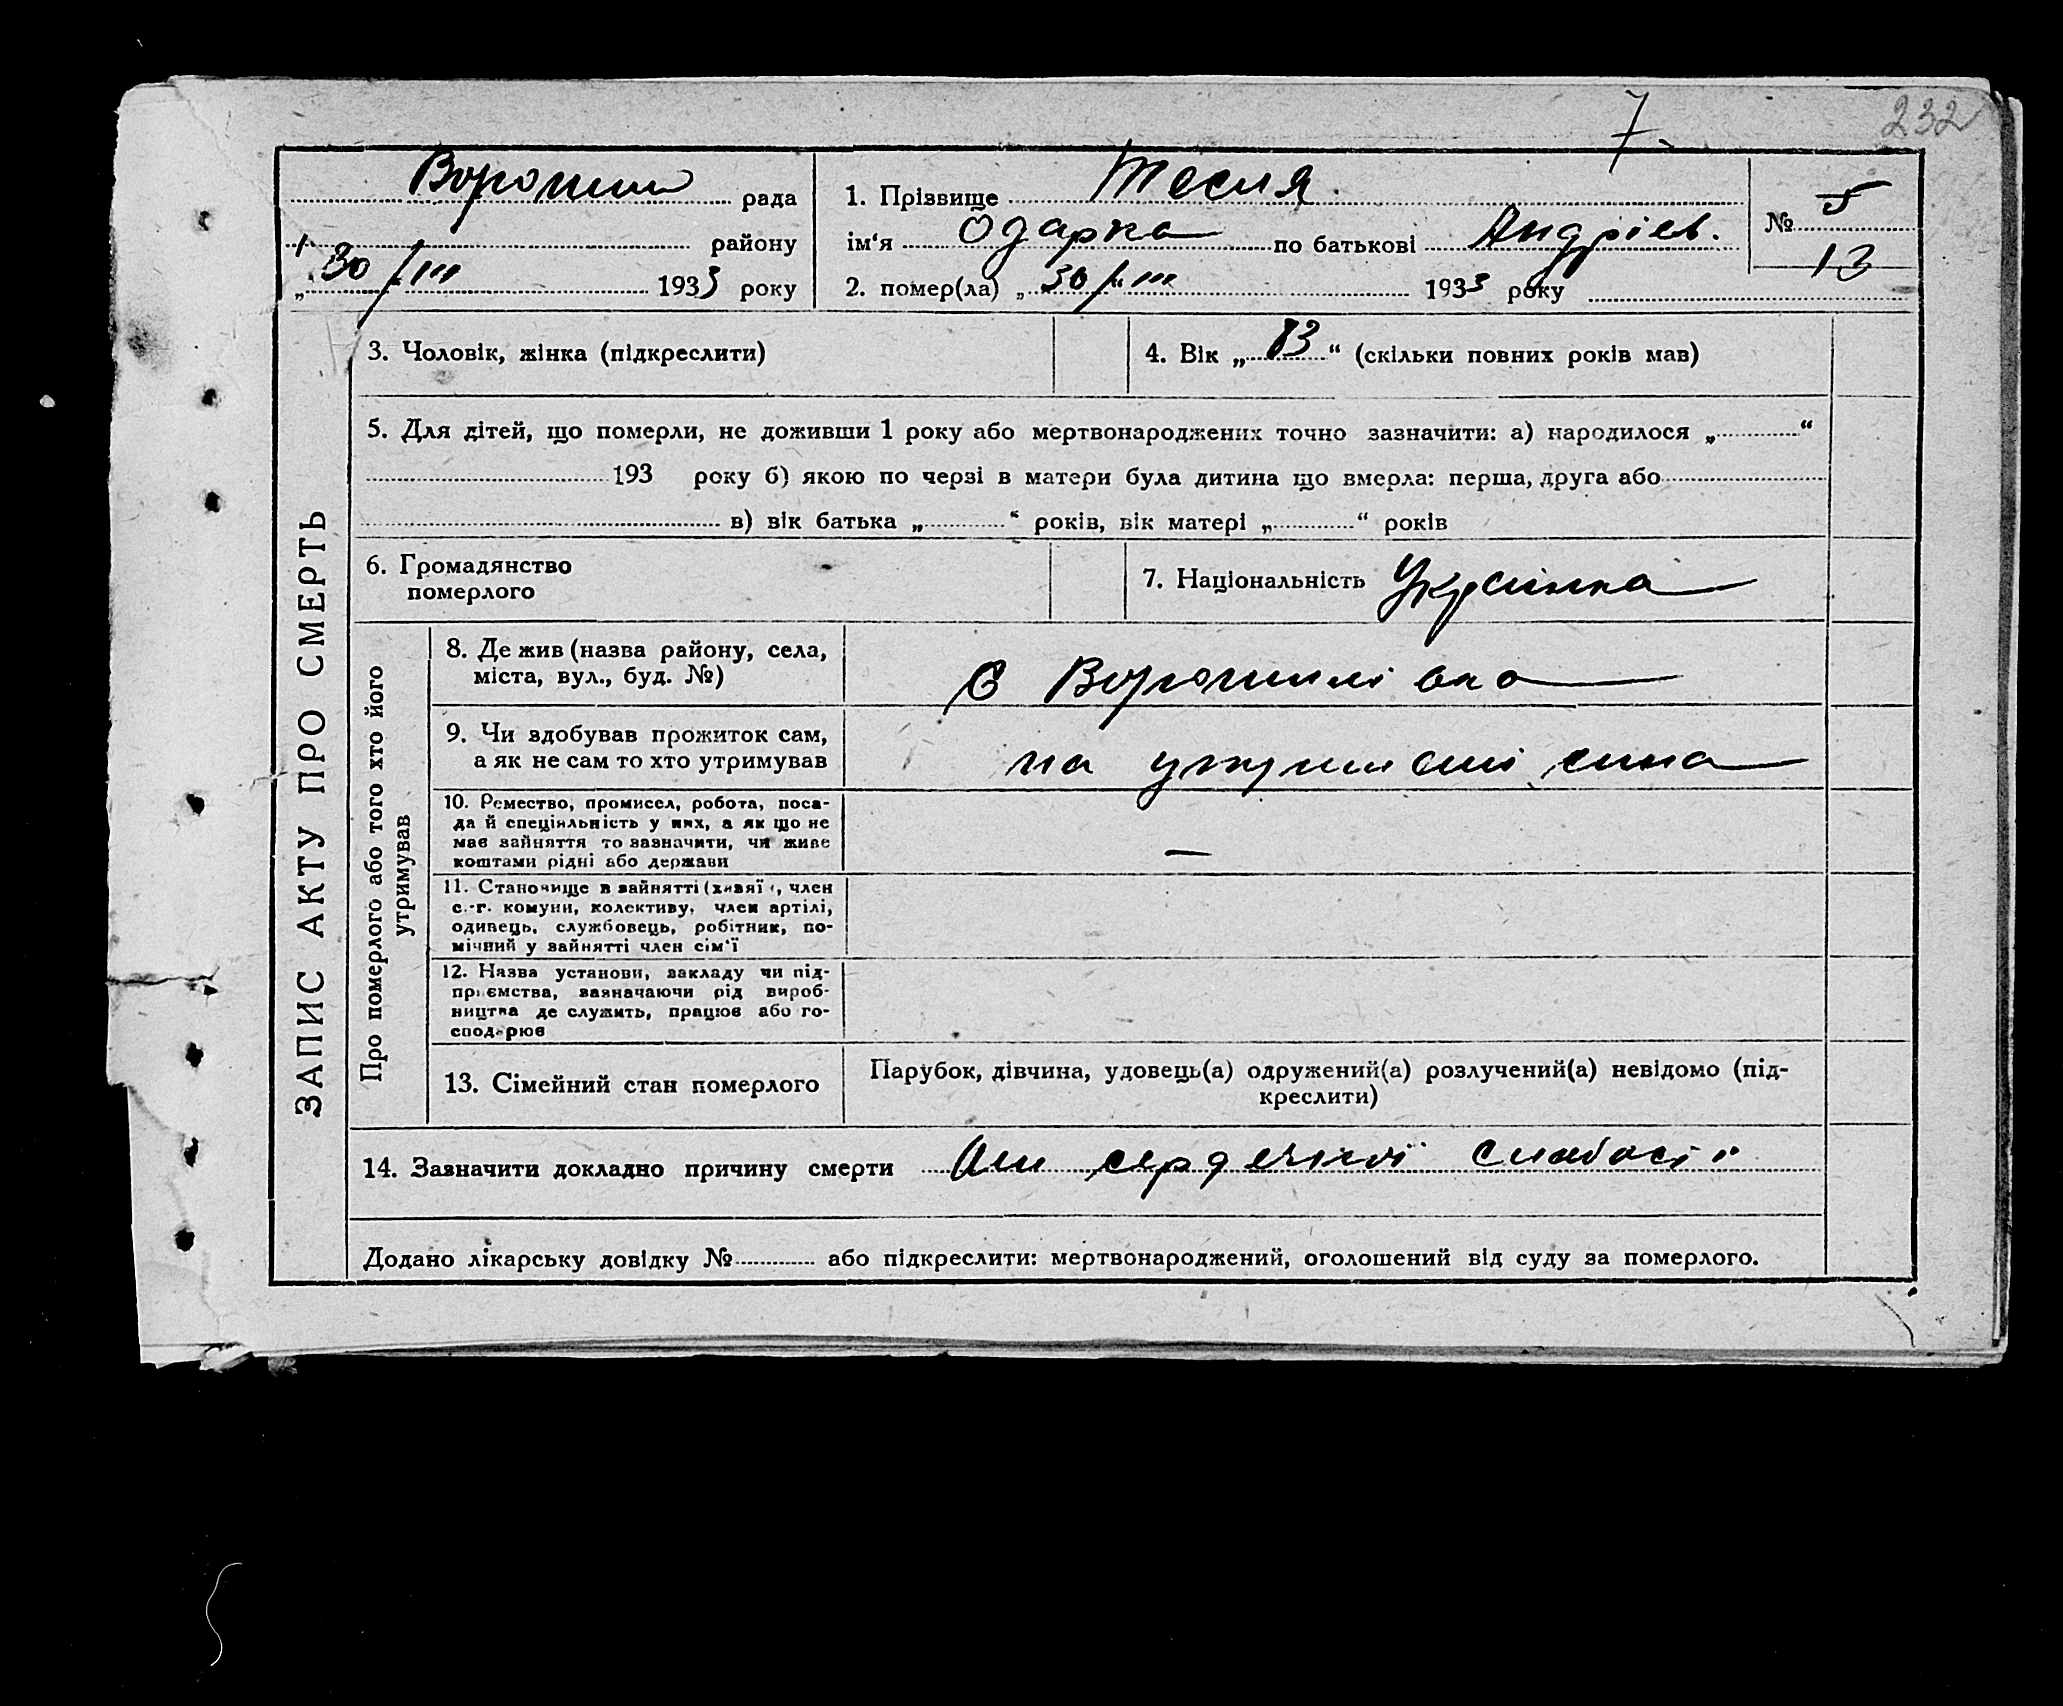 7
232
Ворошил рада
району
„30/III 1933 року
1. Прізвище Тесля
ім‘я Одарка по батькові Андріев.
2. помер(ла) „30/“III 1933 року
№ 5
13
ЗАПИС АКТУ ПРО СМЕРТЬ
3. Чоловік, жінка (підкреслити)
4. Вік „83“ (скільки повних років мав)
5. Для дітей, що померли, не доживши 1 року або мертвонароджених точно зазначити: а) народилося „ “
193 року б) якою по черзі в матери була дитина що вмерла: перша, друга або
в) вік батька „ “ років, вік матері „ “ років
6. Громадянство
померлого
7. Національність Українка
Про померлого або того хто його
утримував
8. Де жив (назва району, села,
міста, вул., буд. №)
с Ворошилівка
9. Чи здобував прожиток сам,
а як не сам то хто утримував
на утриманні сина
10. Ремество, промисел, робота, поса-
да й спеціяльність у них, а як що не
має зайняття то зазначити, чи живе
коштами рідні або держави
—
11. Становище в зайнятті (хазяї , член
с.-г. комуни, колективу, член артілі,
одинець, службовець, робітник, по-
мічний у зайнятті член сім‘ї
12. Назва установи, закладу чи під-
приємства, зазначаючи рід вироб-
ництва де служить, працює або го-
сподарює
13. Сімейний стан померлого
Парубок, дівчина, удовець(а) одружений(а) розлучений(а) невідомо (під-
креслити)
14. Зазначити докладно причину смерти сердечної слабості
Додано лікарську довідку № або підкреслити: мертвонароджений, оголошений від суду за померлого.